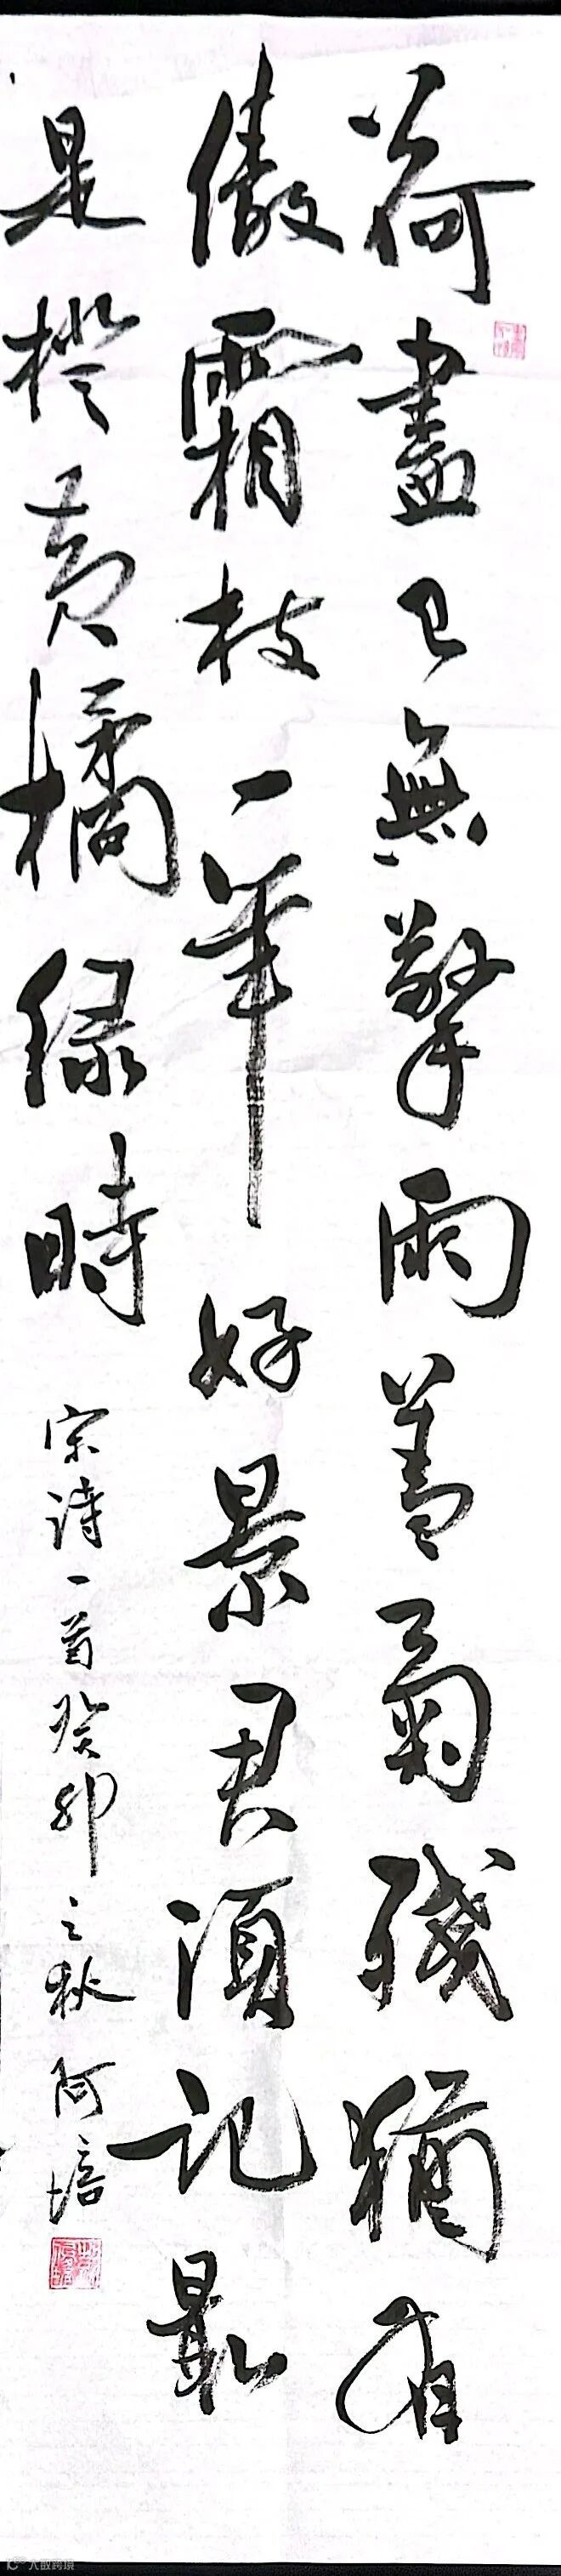 荷盡已無擎雨蓋菊殘猶有
傲霜枝一年好景君須記最
是橙黄橘緑時
宋诗一首癸卯之秋阿培
大数跨境